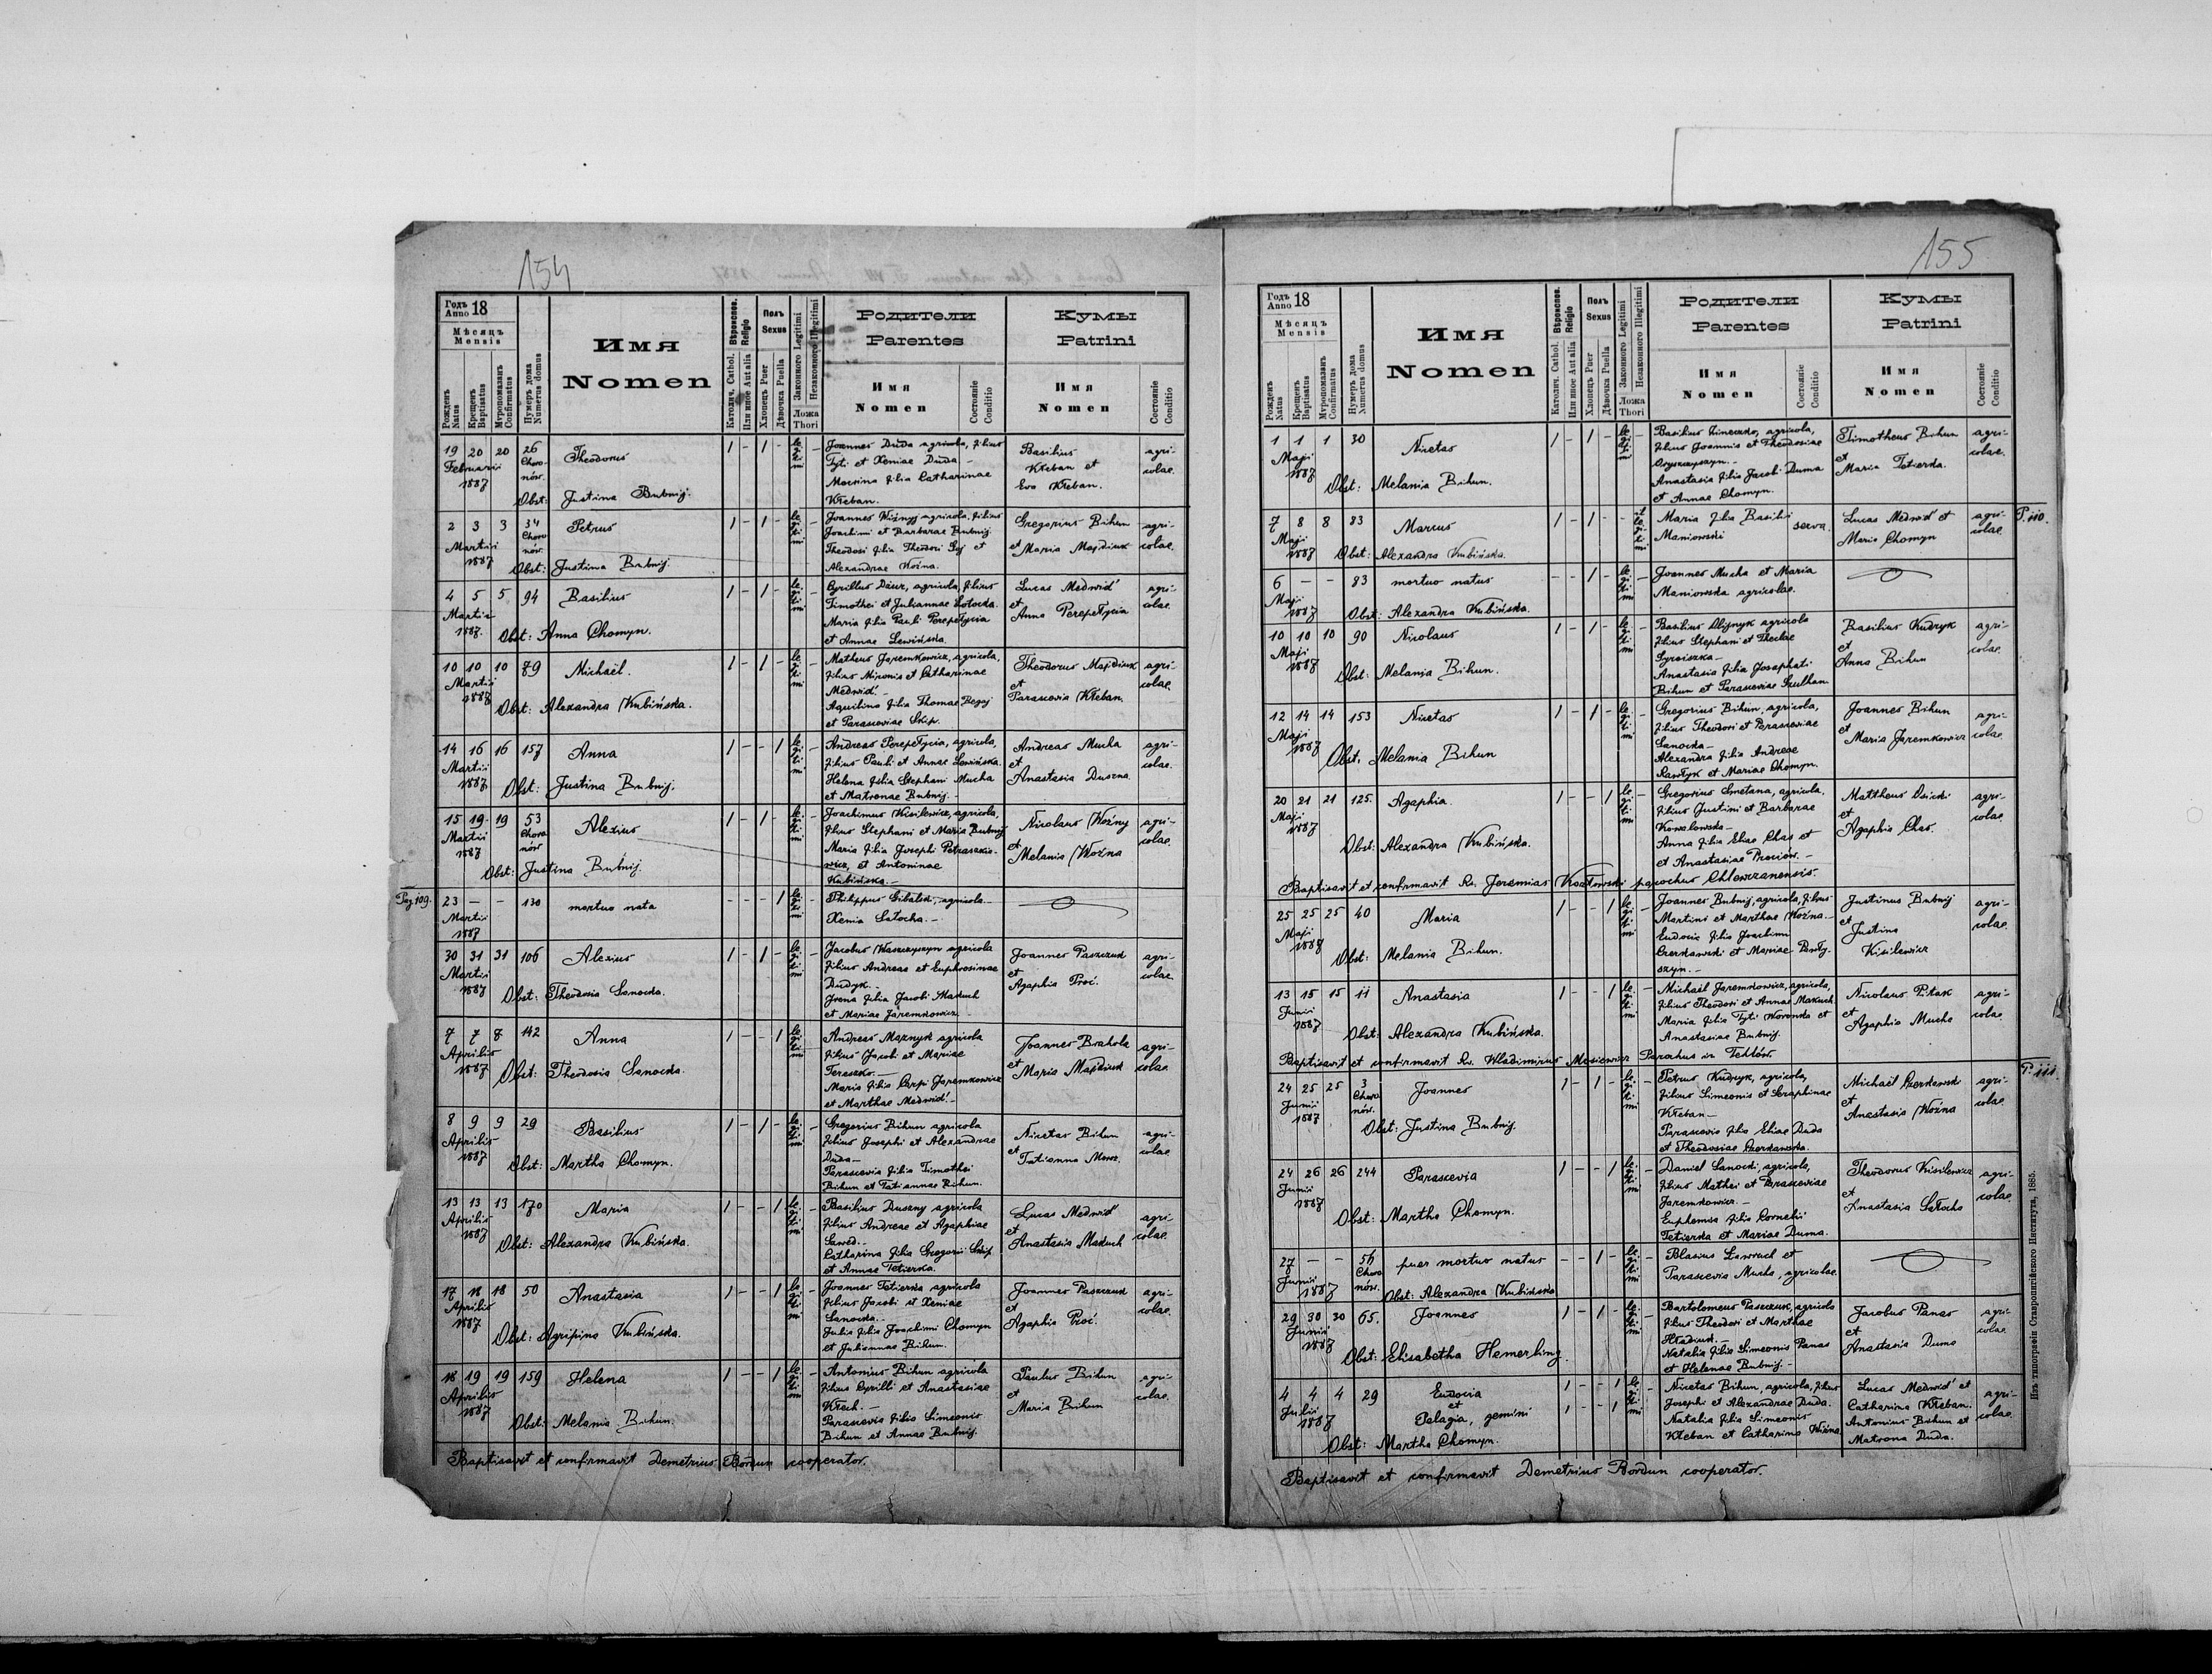 154
Годъ
Anno 18
Мѣсяцъ
Mensis
Рожденъ
Natus
Крещенъ
Baptisatus
Муропомазанъ
Confirmatus
Нумеръ дома
Numerus domus
Имя
Nomen
Вѣроиспов.
Religio
Католич. Cathol.
Или иное Aut alia
Полъ
Sexus
Хлопецъ Puer
Дѣвочка Puella
Законного Legitimi
Незаконного Illegitimi
Ложа
Thori
Родители
Parentes
Имя
Nomen
Состояніе
Conditio
Кумы
Patrini
Имя
Nomen
Состояніе
Conditio
19 20 20 26
Februarii
1887
Choronów.
Theodorus
Obst: Justina Bubnij.
1 - 1 - legitimi -
Joannes Duda agricola, filius
Tyti et Xeniae Duda
filia Catharinae
Kłeban.
Basilius
Kłeban et
Eva Kłeban.
agricolae.
2 3 3 34
Martii
1887
Choronów.
Petrus
Obst: Justina Bubnij.
1 - 1 - legitimi -
Joannes Woźnyj agricola, filius
Joachimi et Barbarae Bubnij.
Theodosi filia Theodori Gej et
Alexandrae Woźna.
Gregorius Bihun
et Maria Majdiuk
agricolae.
4 5 5 94
Martii
1887.
Basilius
Obst: Anna Chomyn.
1 - 1 - legitimi -
Cyrillus Dacz, agricola, filius
Timothei et Julianae Łotocka.
Maria filia Pauli Perepełycia
et Annae Lewińska.
Lucas Medwid'
et
Anna Perepełycia
agricolae.
10 10 10 89
Martii
1887
Michaël.
Obst: Alexandra Kubińska.
1 - 1 - legitimi -
Matheus Jaremkowicz, agricola,
filius Mironis et Catharinae
Medwid'.-
Aquilina filia Thomae Begej
et Parasceviae Skip.
Theodorus Majdiuk
et
Parascevia Kłeban.
agricolae.
14 16 16 157
Martii
1887
Anna
Obst: Justina Bubnij.
1 - - 1 legitimi -
Andreas Perepełycia, agricola,
filius Pauli et Annae Lewińska.
Helena filia Stephani Mucha
et Matronae Bubnij.-
Andreas Mucha
et
Anastasia Duszna.
agricolae.
15 19 19 53
Martii
1887
Choronów
Alexius
Obst: Justina Bubnij.
1 - 1 - legitimi -
Joachimus Kisilewicz, agricola,
filius Stephani et Maria Bubnij
Maria filia Josephi Petraszkiewicz,
et Antoninae
Kubińska.-
Nicolaus Woźny
et
Melania Woźna
agricolae.
Pag 109.
23 - - 130
Martii
1887
mortuo nata
- - - 1 legitimi -
Philippus Gibalski, agricola.-
Xenia Łatocha.-
30 31 31 106
Martii
1887
Alexius
Obst: Theodosia Sanocka.
1 - 1 - legitimi -
Jacobus Waszczyszyn agricola
filius Andreae et Euphrosinae
Dudyk.-
Irena filia Jacobi Makuch
et Mariae Jaremkowicz.
Joannes Paszczuk
et
Agaphia Proć.
agricolae.
7 7 8 142
Aprilis
1887
Anna
Obst: Theodosia Sanocka.
1 - - 1 legitimi -
Andreas Maznyk agricola
filius Jacobi et Mariae
Tereszko.-
Maria filia Carpi Jaremkowicz
et Marthae Medwid'.-
Joannes Brahola
et
Maria Majdiuk
agricolae.
8 9 9 29
Aprilis
1887
Basilius
Obst: Martha Chomyn.
1 - 1 - legitimi -
Gregorius Bihun agricola
filius Josephi et Alexandrae
Duda-
Parascevia filia Timothei
Bihun et Tatiannae Bihun.
Nicetas Bihun
et
Tatianna Moroz.
agricolae
13 13 13 170
Aprilis
1887
Maria
Obst: Alexandra Kubińska.
1 - - 1 legitimi -
Basilius Duszny agricola
filius Andreae et Agaphiae
Sawed.-
Catharina filia Gregorii Skip
et Annae Tetierka.
Lucas Medwid'
et
Anastasia Makuch
agricolae.
17 18 18 50
Aprilis
1887
Anastasia
Obst: Agripina Kubińska.
1 - - 1 legitimi -
Joannes Tetierka agricola
filius Jacobi et Xeniae
Sanocka.-
Julia filia Joachimi Chomyn
et Julianae Bihun.
Joannes Paszczuk
et
Agaphia Proć.
agricolae.
18 19 19 159
Aprilis
1887
Helena
Obst: Melania Bihun.
1 - - 1 legitimi -
Antonius Bihun agricola
filius Cyrilli et Anastasiae
Kłech.-
Parascevia filia Simeonis
Bihun et Annae Bubnij.
Paulus Bihun
et
Maria Bihun
agricolae.
Baptisavit et confirmavit Demetrius Bordun cooperator.
155
Годъ
Anno 18
Мѣсяцъ
Mensis
Рожденъ
Natus
Крещенъ
Baptisatus
Муропомазанъ
Confirmatus
Нумеръ дома
Numerus domus
Имя
Nomen
Вѣроиспов.
Religio
Католич. Cathol.
Или иное Aut alia
Полъ
Sexus
Хлопецъ Puer
Дѣвочка Puella
Законного Legitimi
Незаконного Illegitimi
Ложа
Thori
Родители
Parentes
Имя
Nomen
Состояніе
Conditio
Кумы
Patrini
Имя
Nomen
Состояніе
Conditio
1 1 1 30
Maji
1887
Nicetas
Obst: Melania Bihun.
1 - 1 - legitimi -
Basilius agricola,
filius Joannis et Theodosiae
Anastasia filia Jacobi Duma
et Annae Chomyn.
Timotheus Bihun
et
Maria Tetierka.
agricolae.
P. 110.
7 8 8 83
Maji
1887
Marcus
Obst: Alexandra Kubińska.
1 - 1 - - illegitimi
Maria filia Basilii
Maniowski
serva.
Lucas Medwid' et
Maria Chomyn
agricolae.
6 - - 83
Maji
1887
mortuo natus
Obst: Alexandra Kubińska.
- - 1 - legitimi -
Joannes Mucha et Maria
Maniowska agricolae.
10 10 10 90
Maji
1887
Nicolaus
Obst: Melania Bihun.
1 - 1 - legitimi -
Basilius Olijnyk agricola
filius Stephani et Theclae
Syroiszka-
Anastasia filia Josaphati
Bihun et Parasceviae Szulhan.
Basilius Kudryk
et
Anna Bihun
agricolae.
12 14 14 153
Maji
1887
Nicetas
Obst. Melania Bihun
1 - 1 - legitimi -
Gregorius Bihun, agricola,
filius Theodori et Parasceviae
Sanocka-
Alexandra filia Andreae
Pawłyk et Mariae Chomyn.
Joannes Bihun
et
Maria Jaremkowicz
agricolae.
20 21 21 125.
Maji
1887
Agaphia.
Obst: Alexandra Kubińska.
1 - - 1 legitimi -
Gregorius Smetana, agricola.
filius Justini et Barbarae
Kowalowska-
Anna filia Eliae Chas et
et Anastasiae Prociów.-
Mattheus Osicki
et
Agaphia Chas.
agricolae.
Baptisavit et confirmavit Rs. Jeremias Kozłowski parochus Chlewczanensis.
25 25 25 40
Maji
1887
Maria
Obst: Melania Bihun.
1 - - 1 legitimi -
Joannes Bubnij, agricola, filius
Martini et Marthae Woźna.-
Eudocia filia Joachimi
Czerkawski et Mariae Pawłyszyn.-
Justinus Bubnij
et
Justina
Kisilewicz
agricolae.
13 15 15 11
Junii
1887
Anastasia
Obst: Alexandra Kubińska.
1 - - 1 legitimi -
Michaël Jaremkowicz, agricola,
filius Theodori et Annae Makuch.
Maria filia Tyti Woronka et
Anastasiae Bubnij.
Nicolaus Pitak
et
Agaphia Mucha
agricolae
Baptisavit et confirmavit Rs. Wladimirus Mosiewicz Parochus in Tehlów.
P. 111.
24 25 25 3
Junii
1887
Choronów.
Joannes
Obst: Justina Bubnij.
1 - 1 - legitimi -
Petrus Kudryk, agricola,
filius Simeonis et Seraphinae
Kłeban-
Parascevia filia Eliae Duda
et Theodosiae Czerkawska.
Michaël Czerkawski
et
Anastasia Woźna
agricolae
24 26 26 244
Junii
1887
Parascevia
Obst: Martha Chomyn.
1 - - 1 legitimi -
Daniel Sanocki, agricola,
filius Mathei et Parasceviae
Jaremkowicz.-
Euphemia filia Cornelii
Tetierka et Mariae Duma.
Theodorus Kisilewicz
et
Anastasia Łatocha
agricolae.
27 - - 56
Junii
1887
Choronów.
puer mortuo natus
Obst: Alexandra Kubińska
- - 1 - legitimi -
Blasius Ławruch et
Parascevia Mucha, agricolae.
29 30 30 65.
Junii
1887
Joannes
Obst: Elisabetha Hemerling.
1 - 1 - legitimi -
Bartolomeus Paszczuk, agricola
filius Theodori et Marthae
Hładiuk.-
Natalia filia Simeonis Panas
et Helenae Bubnij.-
Jacobus Panas
et
Anastasia Duma
agricolae.
4 4 4 29
Julii
1887
Eudocia
et
Pelagia, gemini
Obst: Martha Chomyn.
1 - - 1 legitimi -
1 - - 1
Nicetas Bihun, agricola, filius
Josephi et Alexandrae Duda.
Natalia filia Simeonis
Kłeban et Catharina Woźna.
Lucas Medwid' et
Catharina Kłeban.
Antonius Bihun et
Matrona Duda.
agricolae.
Baptisavit et confirmavit Demetrius Bordun cooperator.
Изъ типографіи Ставропигійского Института, 1885.